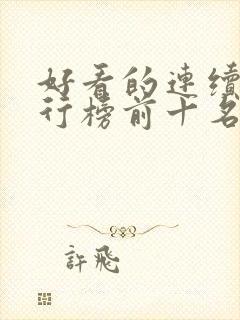 好看的連續
行榜前十名
許飛